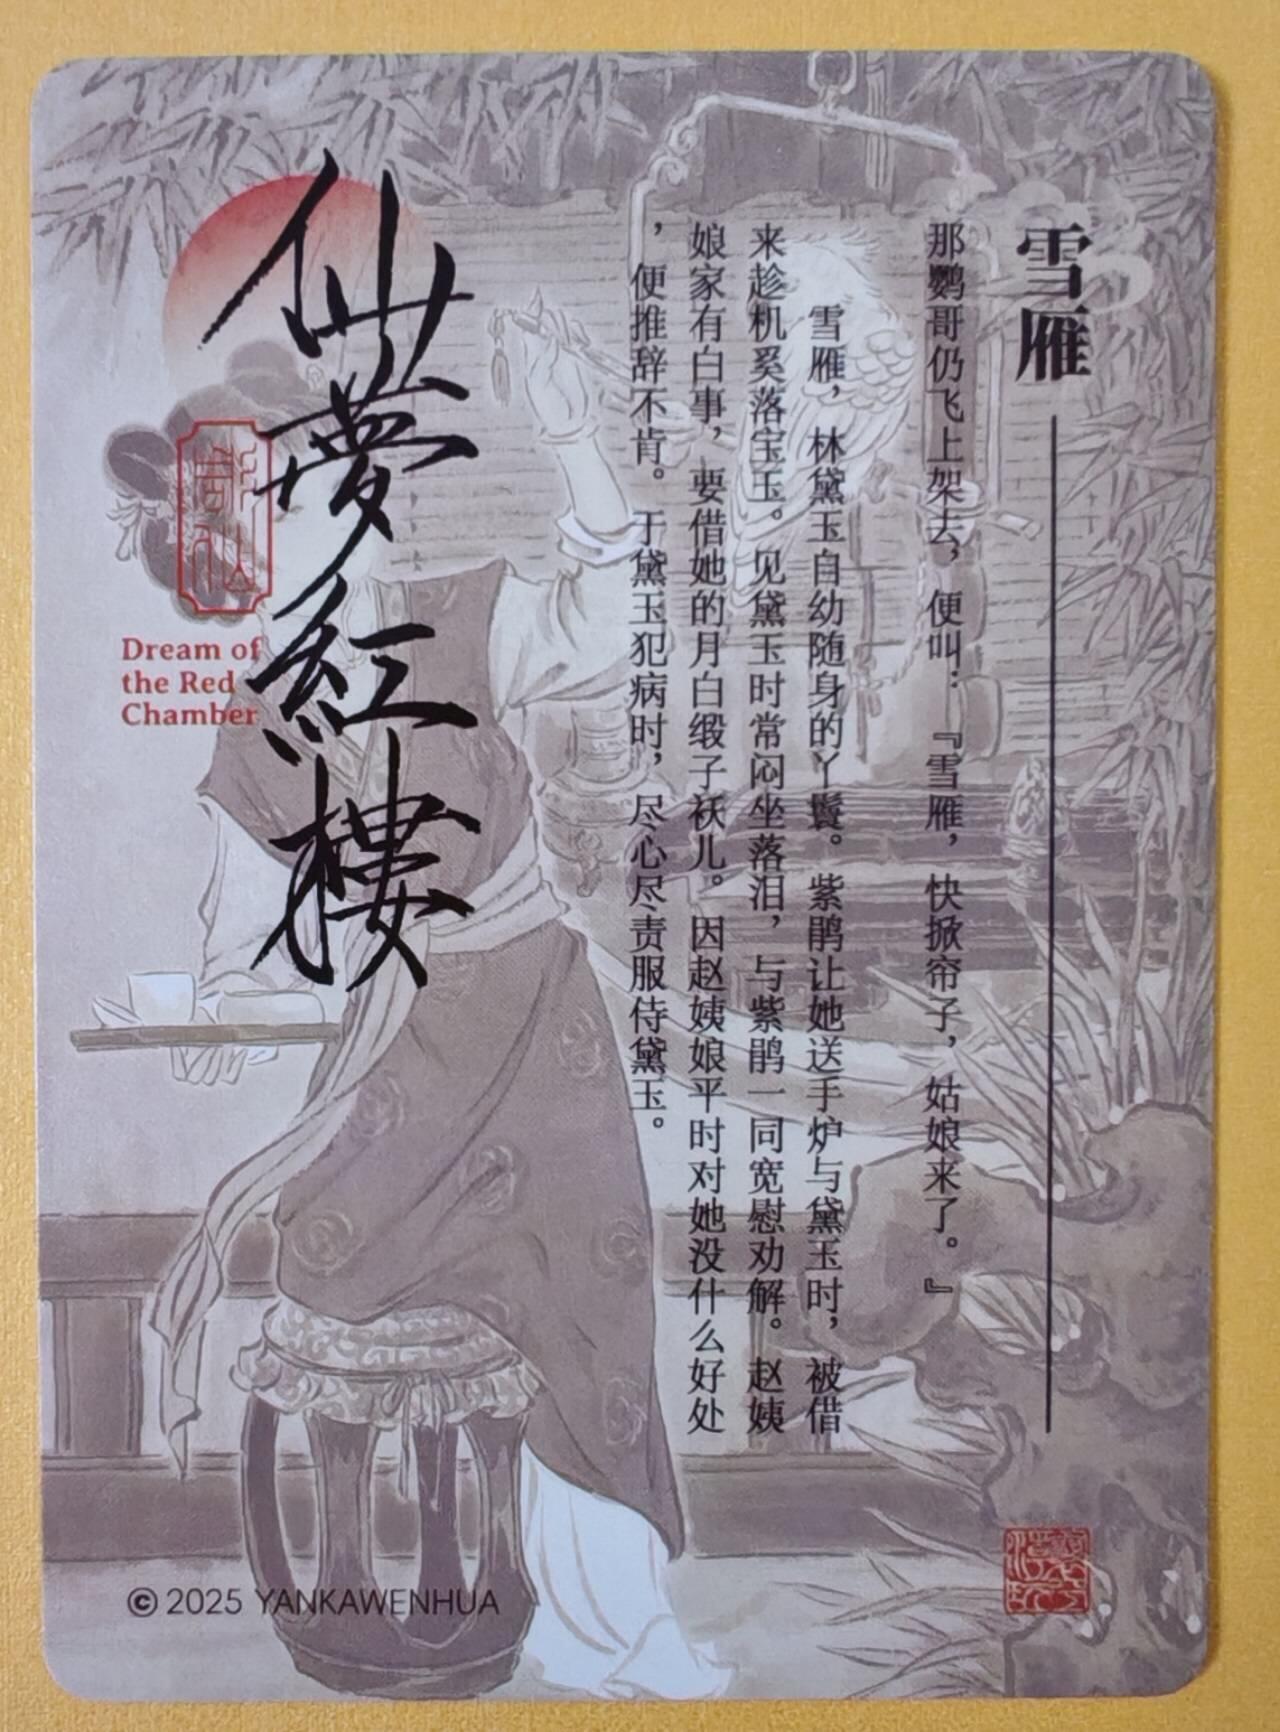 雪雁
那鹦哥仍飞上架去，便叫：『雪雁，快掀帘子，姑娘来了。』
雪雁，林黛玉自幼随身的丫鬟。紫鹃让她送手炉与黛玉时，被借
来趁机奚落宝玉。见黛玉时常闷坐落泪，与紫鹃一同宽慰劝解。赵姨
娘家有白事，要借她的月白缎子袄儿。因赵姨娘平时对她没什么好处
，便推辞不肯。于黛玉犯病时，尽心尽责服侍黛玉。
仙夢紅樓
Dream of
the Red
Chamber
© 2025 YANKAWENHUA